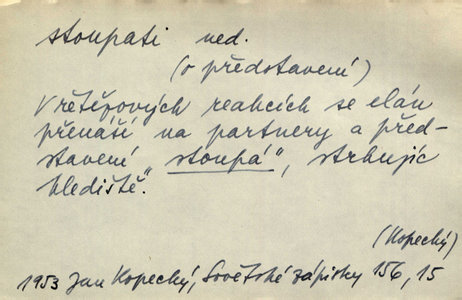 stoupati ned.
(o představení)
V řetězových reakcích se elán
přenáší na partnery a před-
stavení „stoupá“, strhujíc
hlediště.
(Kopecký)
1953 Jan Kopecký, Sovětské zápisky 156, 15